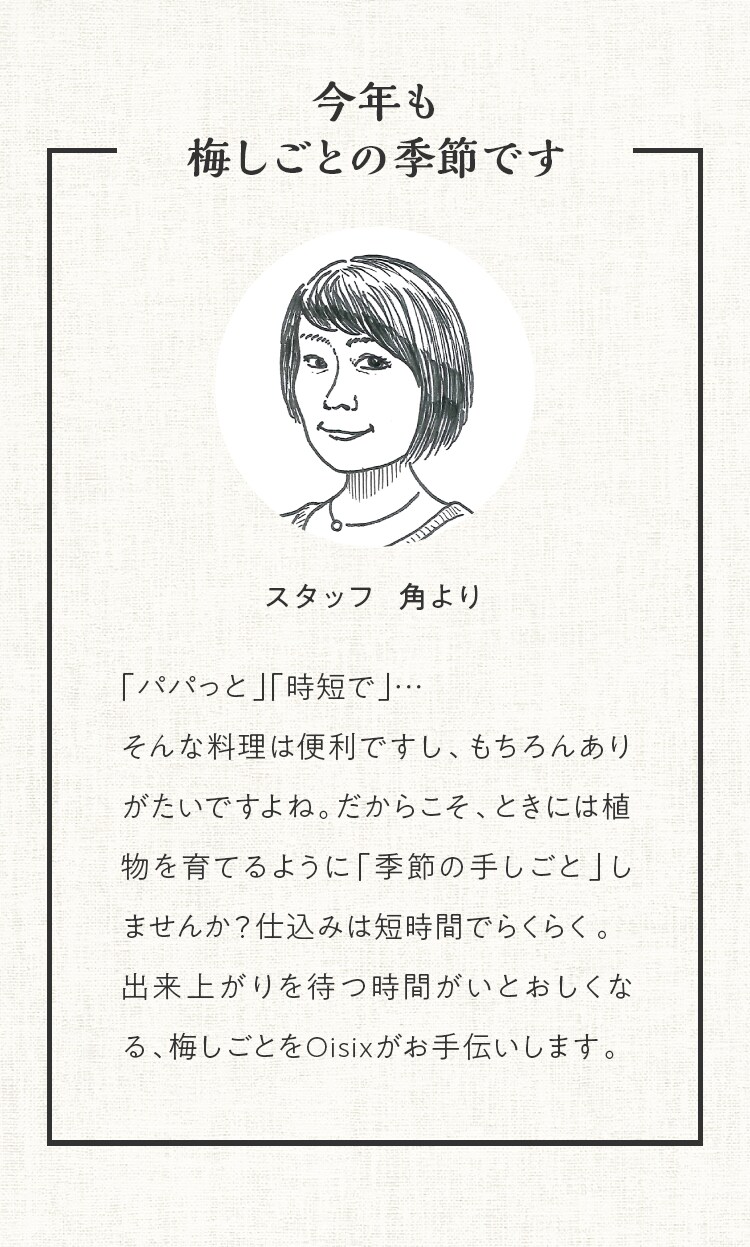 今年も
梅しごとの季節です
スタッフ 角より
「パパっと」「時短で」…
そんな料理は便利ですし、もちろんあり
がたいですよね。だからこそ、ときには植
物を育てるように「季節の手しごと」し
ませんか?仕込みは短時間でらくらく。
出来上がりを待つ時間がいとおしくな
る、梅しごとをOisixがお手伝いします。